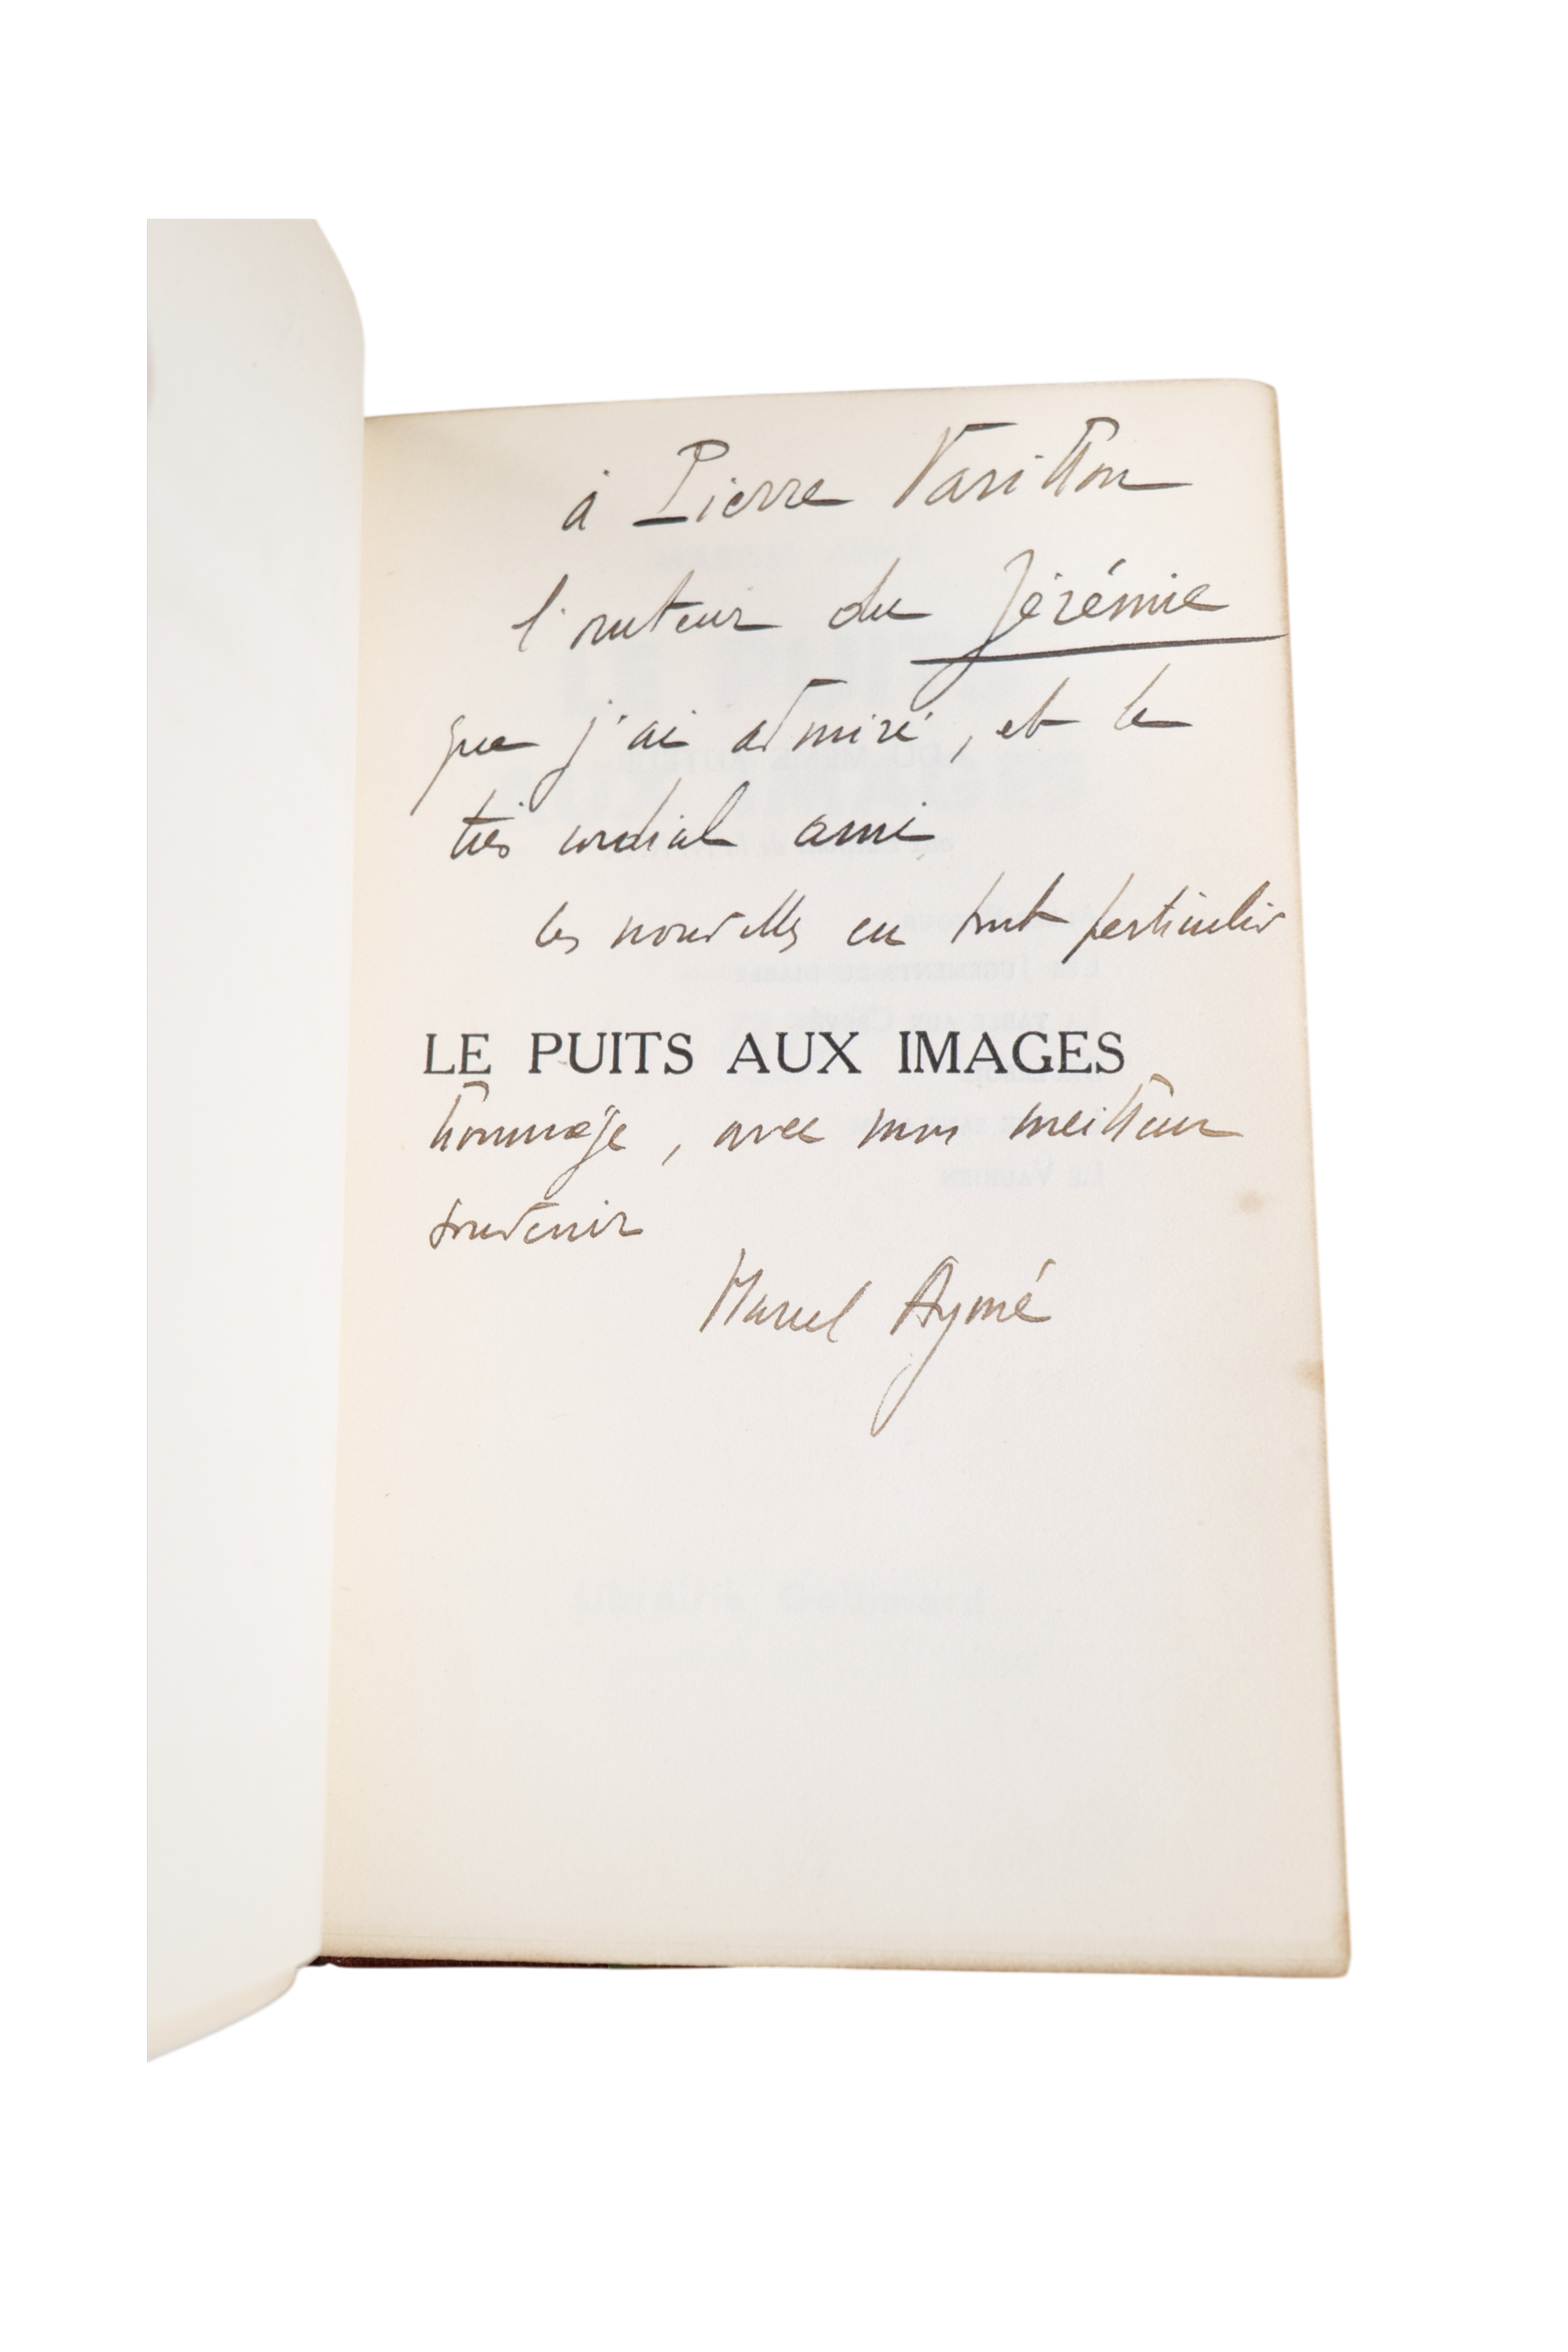 à Pierre Varillon
l'auteur du Jérémie
que j'ai admiré, et le
très cordial ami
ces nouvelles en tout particulier
LE PUITS AUX IMAGES
hommage, avec mon meilleur
souvenir
Marcel Aymé